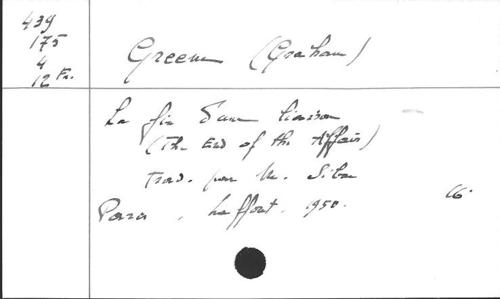 439
175
4
12 Fr.
Greene (Graham)
La fin d'une liaison
(The End of the Affair)
Trad. par M. Sibon
Paris, Laffont, 1950.
16.